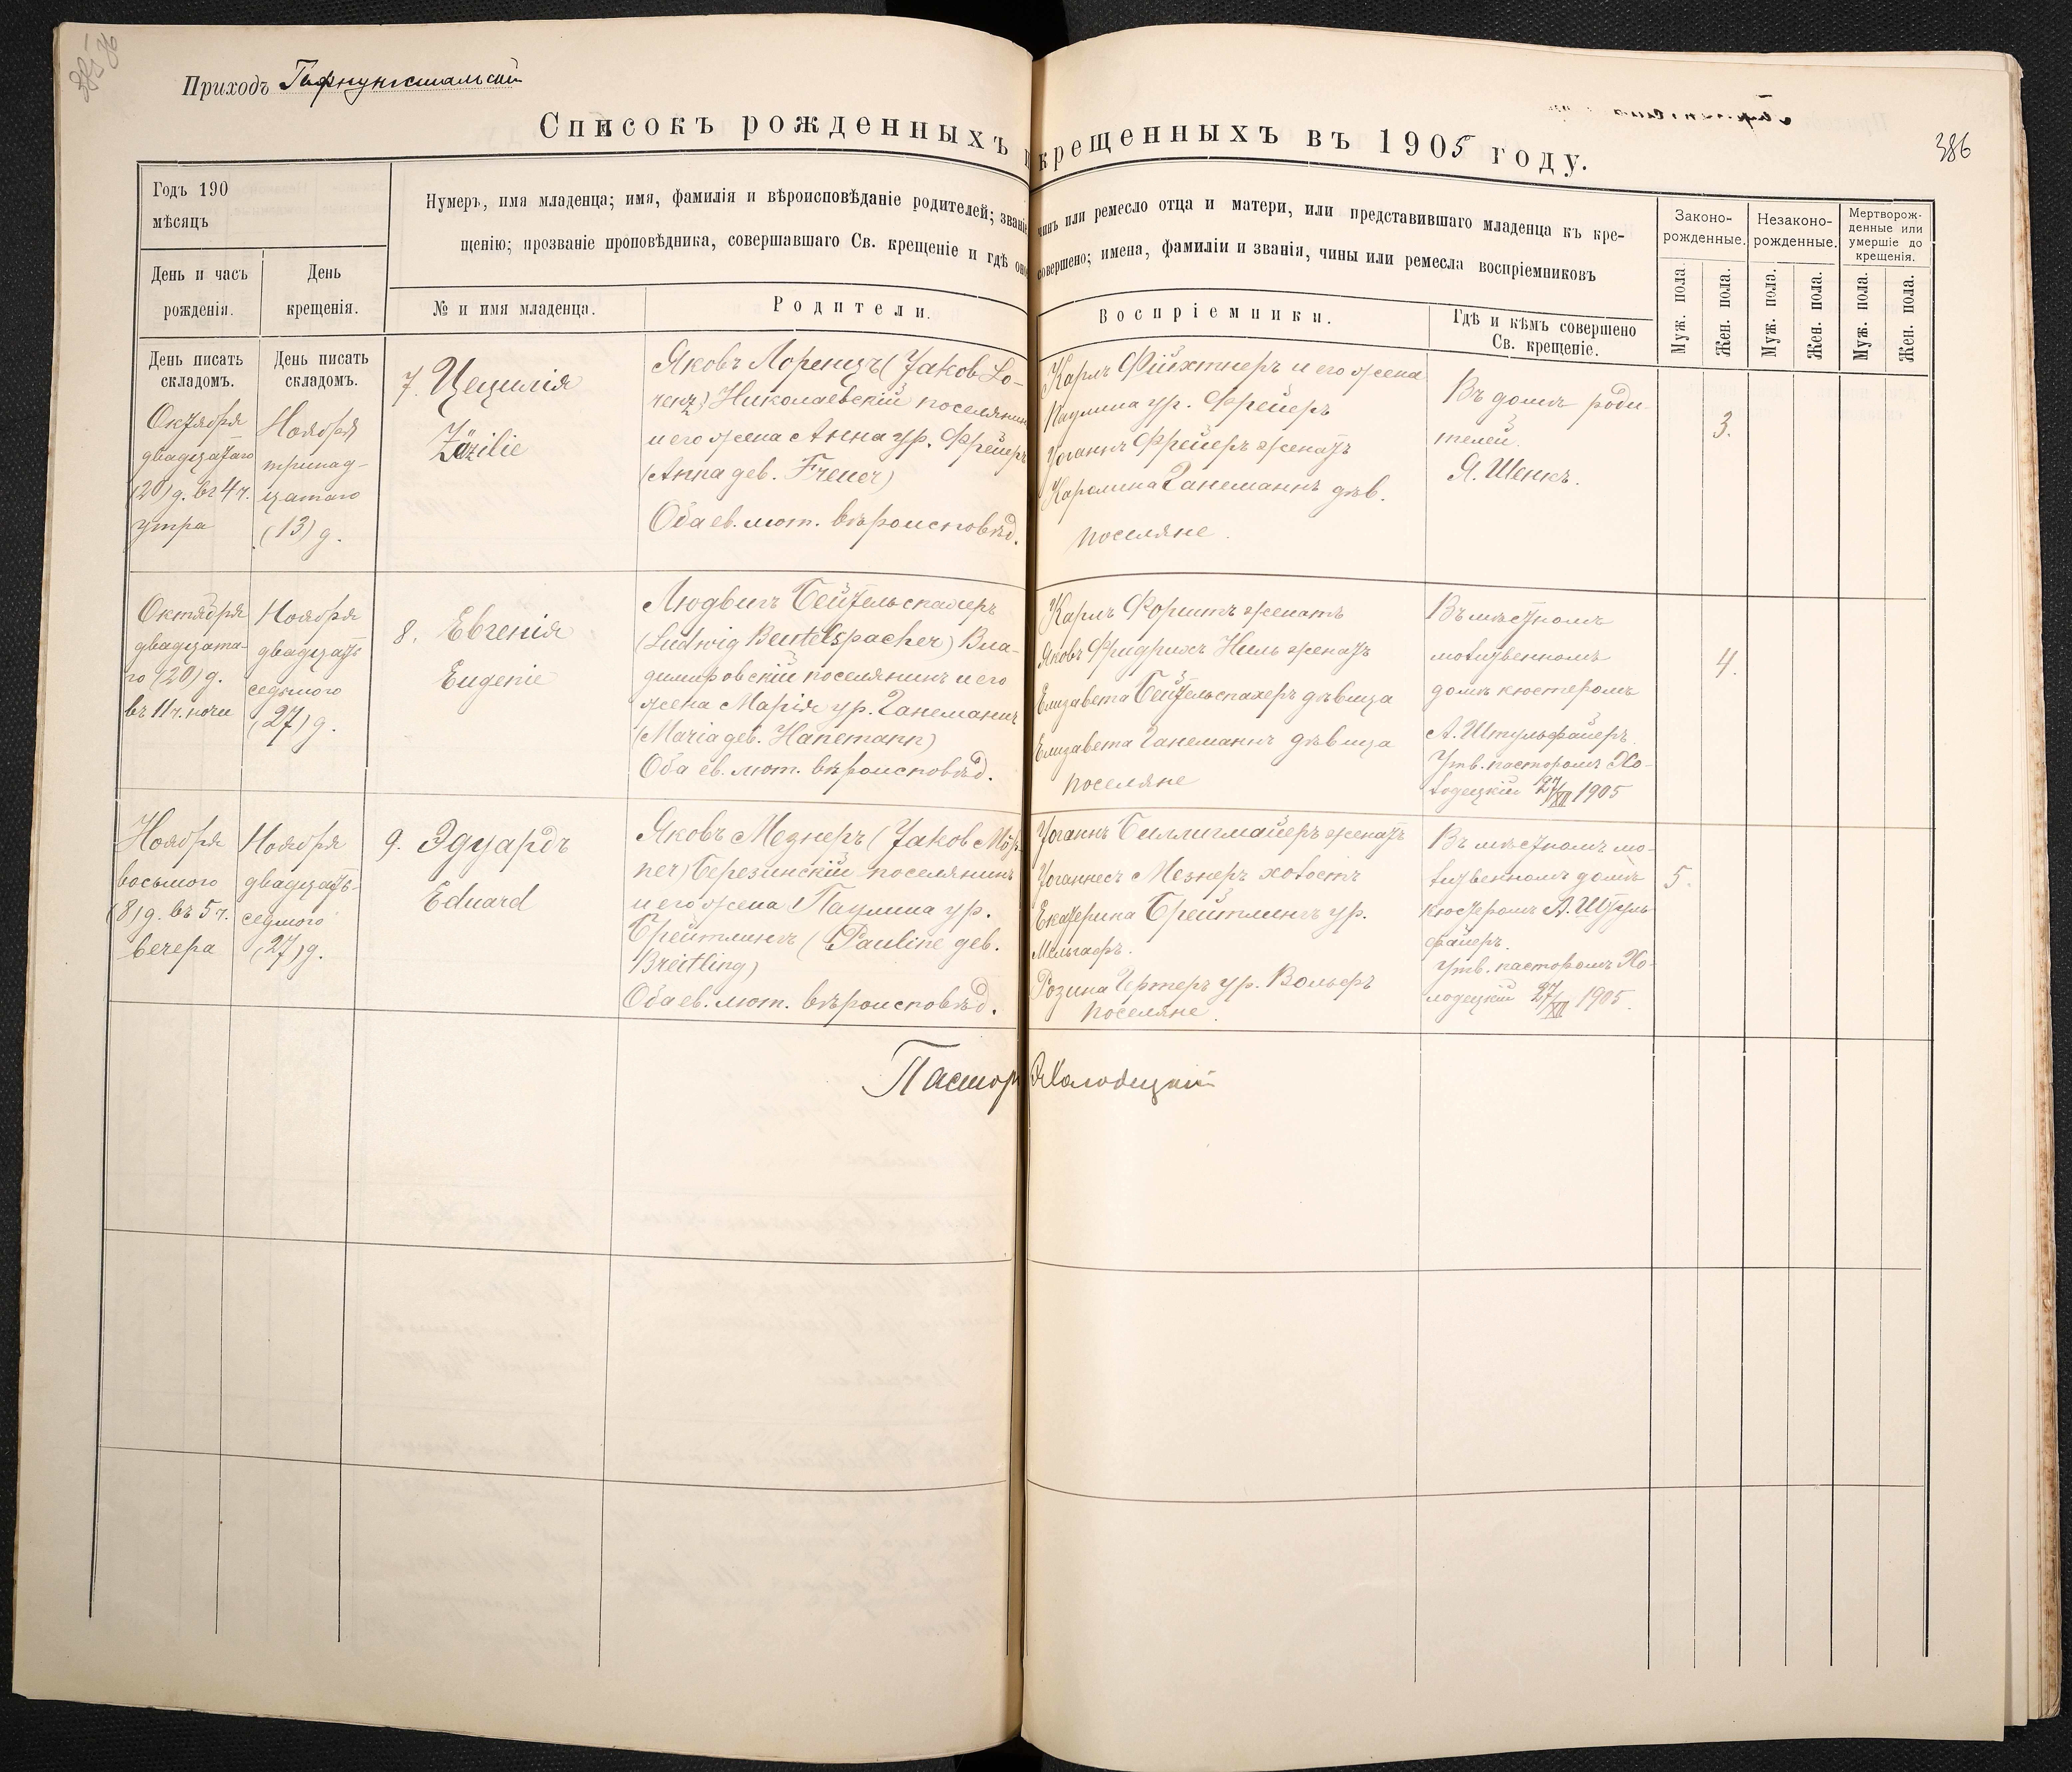 385 об
Приходъ Гофнунгстальскій
Списокъ рожденныхъ и крещенныхъ въ 1905 году.
386
Годъ 190
мѣсяцъ
День и часъ
рожденія.
День
крещенія.
Нумеръ, имя младенца; имя, фамилія и вѣроисповѣданіе родителей; званіе
чинъ или ремесло отца и матери, или представившаго младенца къ кре-
щенію; прозваніе проповѣдника, совершавшаго Св. крещеніе и гдѣ оно
совершено; имена, фамиліи и званія, чины или ремесла воспріемниковъ
№ и имя младенца.
Родители.
Воспріемники.
Гдѣ и кѣмъ совершено
Св. крещеніе.
Законо-
рожденные.
Незаконо-
рожденные.
Мертворож-
денные или
умершіе до
крещенія.
Муж. пола.
Жен. пола.
Муж. пола.
Жен. пола.
Муж. пола.
Жен. пола.
День писать
складомъ.
День писать
складомъ.
Октября
двадцатаго
(20) д. въ 4 ч.
утра
Ноября
тринад-
цатаго
(13) д.
7. Цецилія
Zäzilie
Яковъ Лоренцъ (Jakob Lo-
renz) Николаевскій поселянинъ
и его жена Анна ур. Фрейеръ
(Anna geb. Freuer)
Оба ев. лют. вѣроисповѣд.
Карлъ Фйихтнеръ и его жена
Паулина ур. Фрейеръ
Іоганнъ Фрейеръ женатъ
Каролина Ганеманнъ дѣв.
поселяне.
Въ домѣ роди-
телей.
Я. Шенкъ.
3.
Октября
двадцата-
го (20) д.
въ 11 ч. ночи
Ноября
двадцать
седьмого
(27) д.
8. Евгенія
Eugenie
Людвигъ Бейтельспахеръ
(Ludwig Beutelspacher) Вла-
димировскій поселянинъ и его
жена Марія ур. Ганеманнъ
(Maria geb. Hanemann)
Оба ев. лют. вѣроисповѣд.
Карлъ Форитъ женатъ
Яковъ Фридрихъ Ниль женатъ
Елизавета Бейтельспахеръ дѣвица
Елизавета Ганеманнъ дѣвица
поселяне
Въ мѣстномъ
молитвенномъ
домѣ кюстеромъ
А. Штульфайеръ.
Утв. пасторомъ Хо-
лодецкій 27/XII 1905
4.
Ноября
восьмого
(8) д. въ 5 ч.
вечера
Ноября
двадцать-
седмого
(27) д.
9. Эдуардъ
Eduard
Яковъ Мезнеръ (Jakob Mös-
ner) Березинскій поселянинъ
и его жена Паулина ур.
Брейтлингъ (Pauline geb.
Breitling)
Оба ев. лют. вѣроисповѣд.
Іоганнъ Биллигмайеръ женатъ
Іоганнесъ Мезнеръ холостъ
Екатерина Брейтлингъ ур.
Мельгафъ.
Розина Гертеръ ур. Вольфъ
поселяне.
Въ мѣстномъ мо-
литвенномъ домѣ
кюстеромъ А. Штуль-
файеръ.
Утв. пасторомъ Хо-
лодецкій 27/XII 1905.
5.
Пасторъ Я Холодецкій